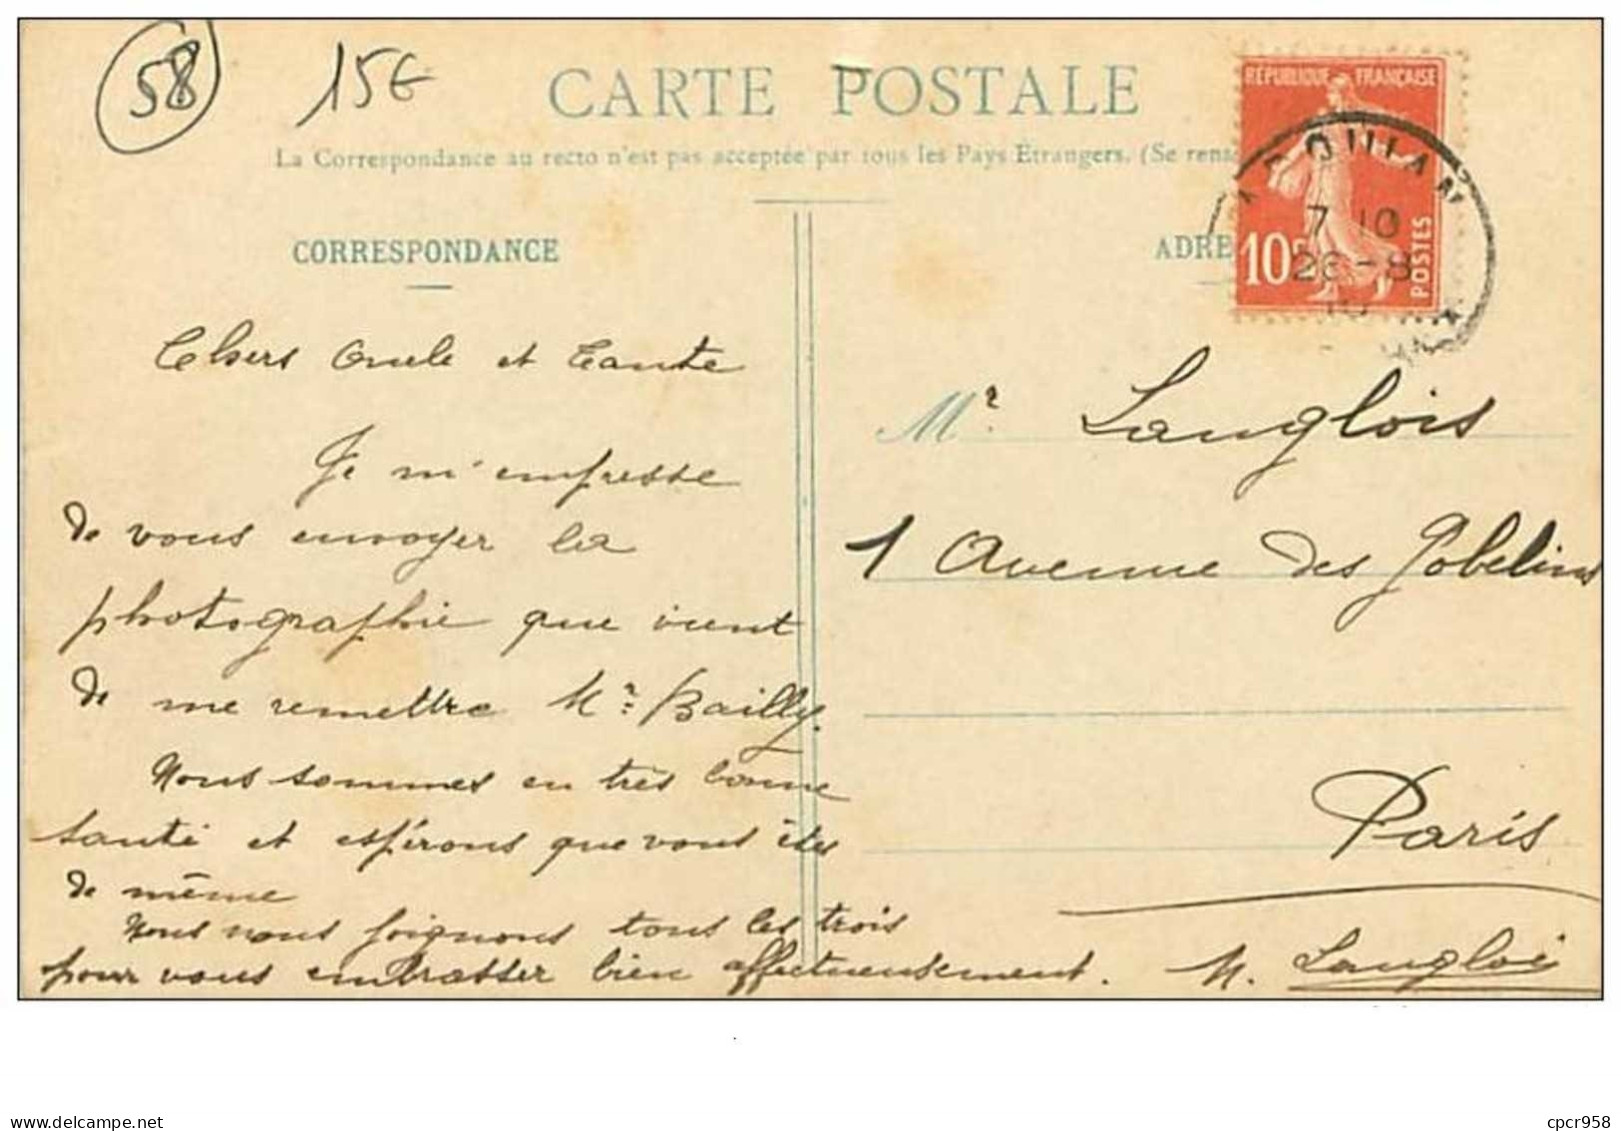 58
15€
CARTE POSTALE
La Correspondance au recto n'est pas acceptée par tous les Pays Etrangers. (Se rens
RÉPUBLIQUE FRANÇAISE
10c
POSTES
7 10
26-8
CORRESPONDANCE
ADRE
Chers Oncle et Tante
Je m'empresse
de vous envoyer la
photographie que vient
de me remettre Mr Bailly.
Nous sommes en très bonne
santé et espérons que vous êtes
de même
Nous nous joignons tous les trois
pour vous embrasser bien affectueusement. M. Langlois
Mr Langlois
1 Avenue des Gobelins
Paris
www.delcampe.net
cpcr958